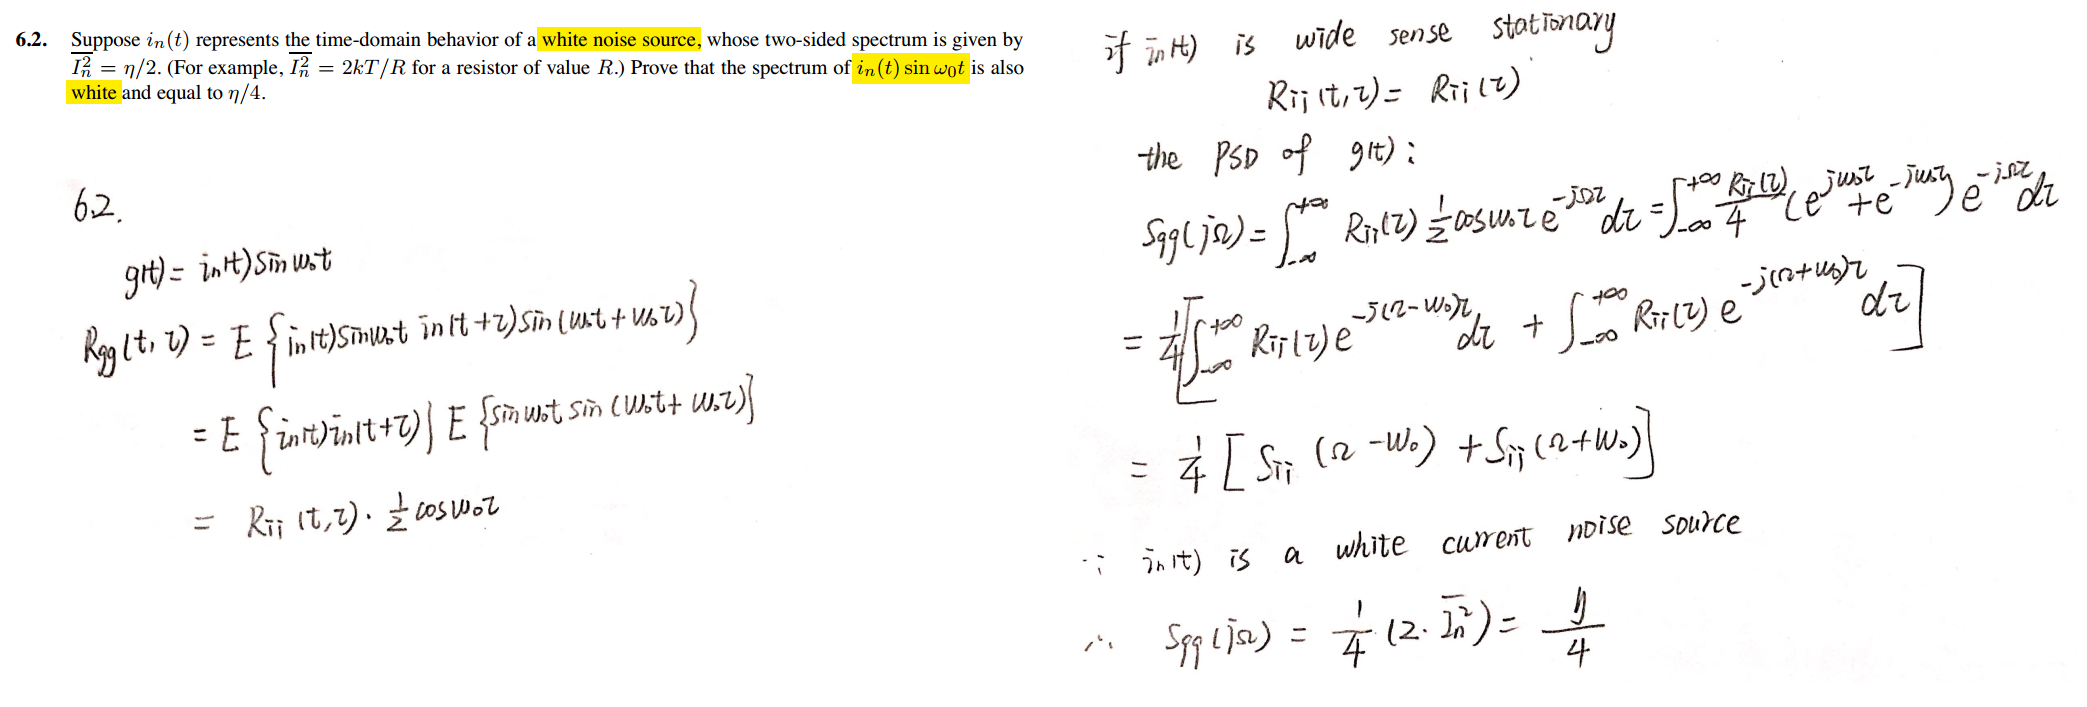 6.2. Suppose iₙ(t) represents the time-domain behavior of a white noise source, whose two-sided spectrum is given by
\overline{I_n^2} = η/2. (For example, \overline{I_n^2} = 2kT/R for a resistor of value R.) Prove that the spectrum of iₙ(t) sin ω₀t is also
white and equal to η/4.
6.2.
g(t) = in(t) sin ω₀t
Rgg(t, τ) = E { in(t) sin ω₀t in(t+τ) sin(ω₀t + ω₀τ) }
= E { in(t) in(t+τ) } E { sin ω₀t sin(ω₀t + ω₀τ) }
= Rii(t,τ) · 1/2 cos ω₀τ
if in(t) is wide sense stationary
Rii(t,τ) = Rii(τ)
the PSD of g(t) :
Sgg(jΩ) = ∫_{-∞}^{+∞} Rii(τ) 1/2 cos ω₀τ e^{-jΩτ} dτ = ∫_{-∞}^{+∞} Rii(τ)/4 (e^{jω₀τ} + e^{-jω₀τ}) e^{-jΩτ} dτ
= 1/4 [ ∫_{-∞}^{+∞} Rii(τ) e^{-j(Ω-ω₀)τ} dτ + ∫_{-∞}^{+∞} Rii(τ) e^{-j(Ω+ω₀)τ} dτ ]
= 1/4 [ Sii (Ω - ω₀) + Sii (Ω + ω₀) ]
∵ in(t) is a white current noise source
∴ Sgg(jΩ) = 1/4 (2 · \overline{I_n^2}) = η/4